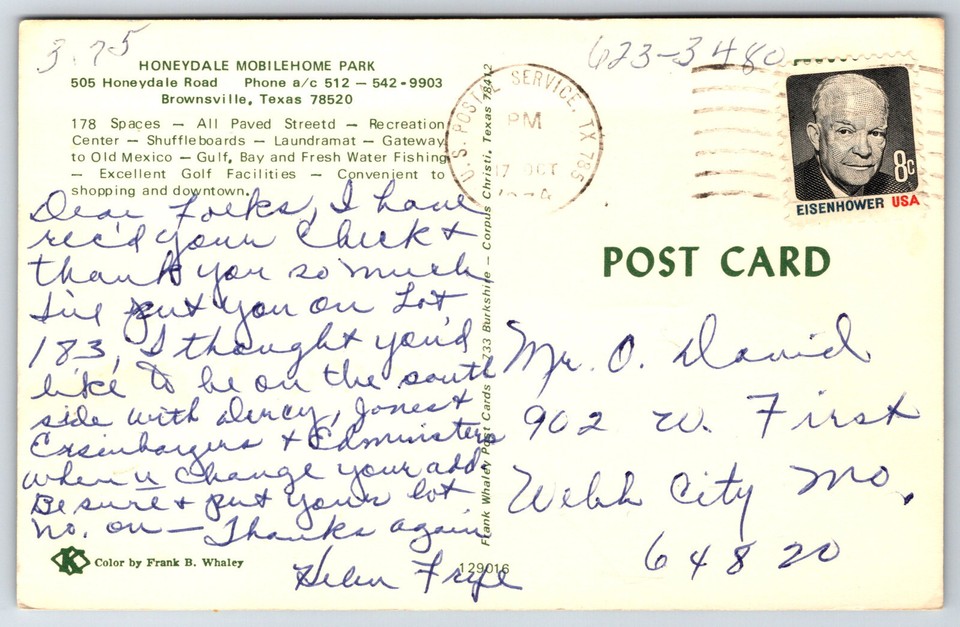 3.75
623-3480
HONEYDALE MOBILEHOME PARK
505 Honeydale Road Phone a/c 512 — 542-9903
Brownsville, Texas 78520
178 Spaces — All Paved Streetd — Recreation
Center — Shuffleboards — Laundramat — Gateway
to Old Mexico — Gulf, Bay and Fresh Water Fishing
— Excellent Golf Facilities — Convenient to
shopping and downtown.
Dear Folks, I have
rec'd your Check &
thank you so much
I've put you on Lot
183, I thought you'd
like to be on the south
side with Dercy, Jones &
Ersinbargers & Edministers
when u Change your add
Be sure & put your lot
no. on — Thanks again
Helen Frye
Color by Frank B. Whaley
129016
Frank Whaley Post Cards — 733 Burkshire — Corpus Christi, Texas 78412
U.S. POSTAL SERVICE, TX 785
PM
17 OCT
8c
EISENHOWER USA
POST CARD
Mr. O. David
902 W. First
Webb City Mo.
64820